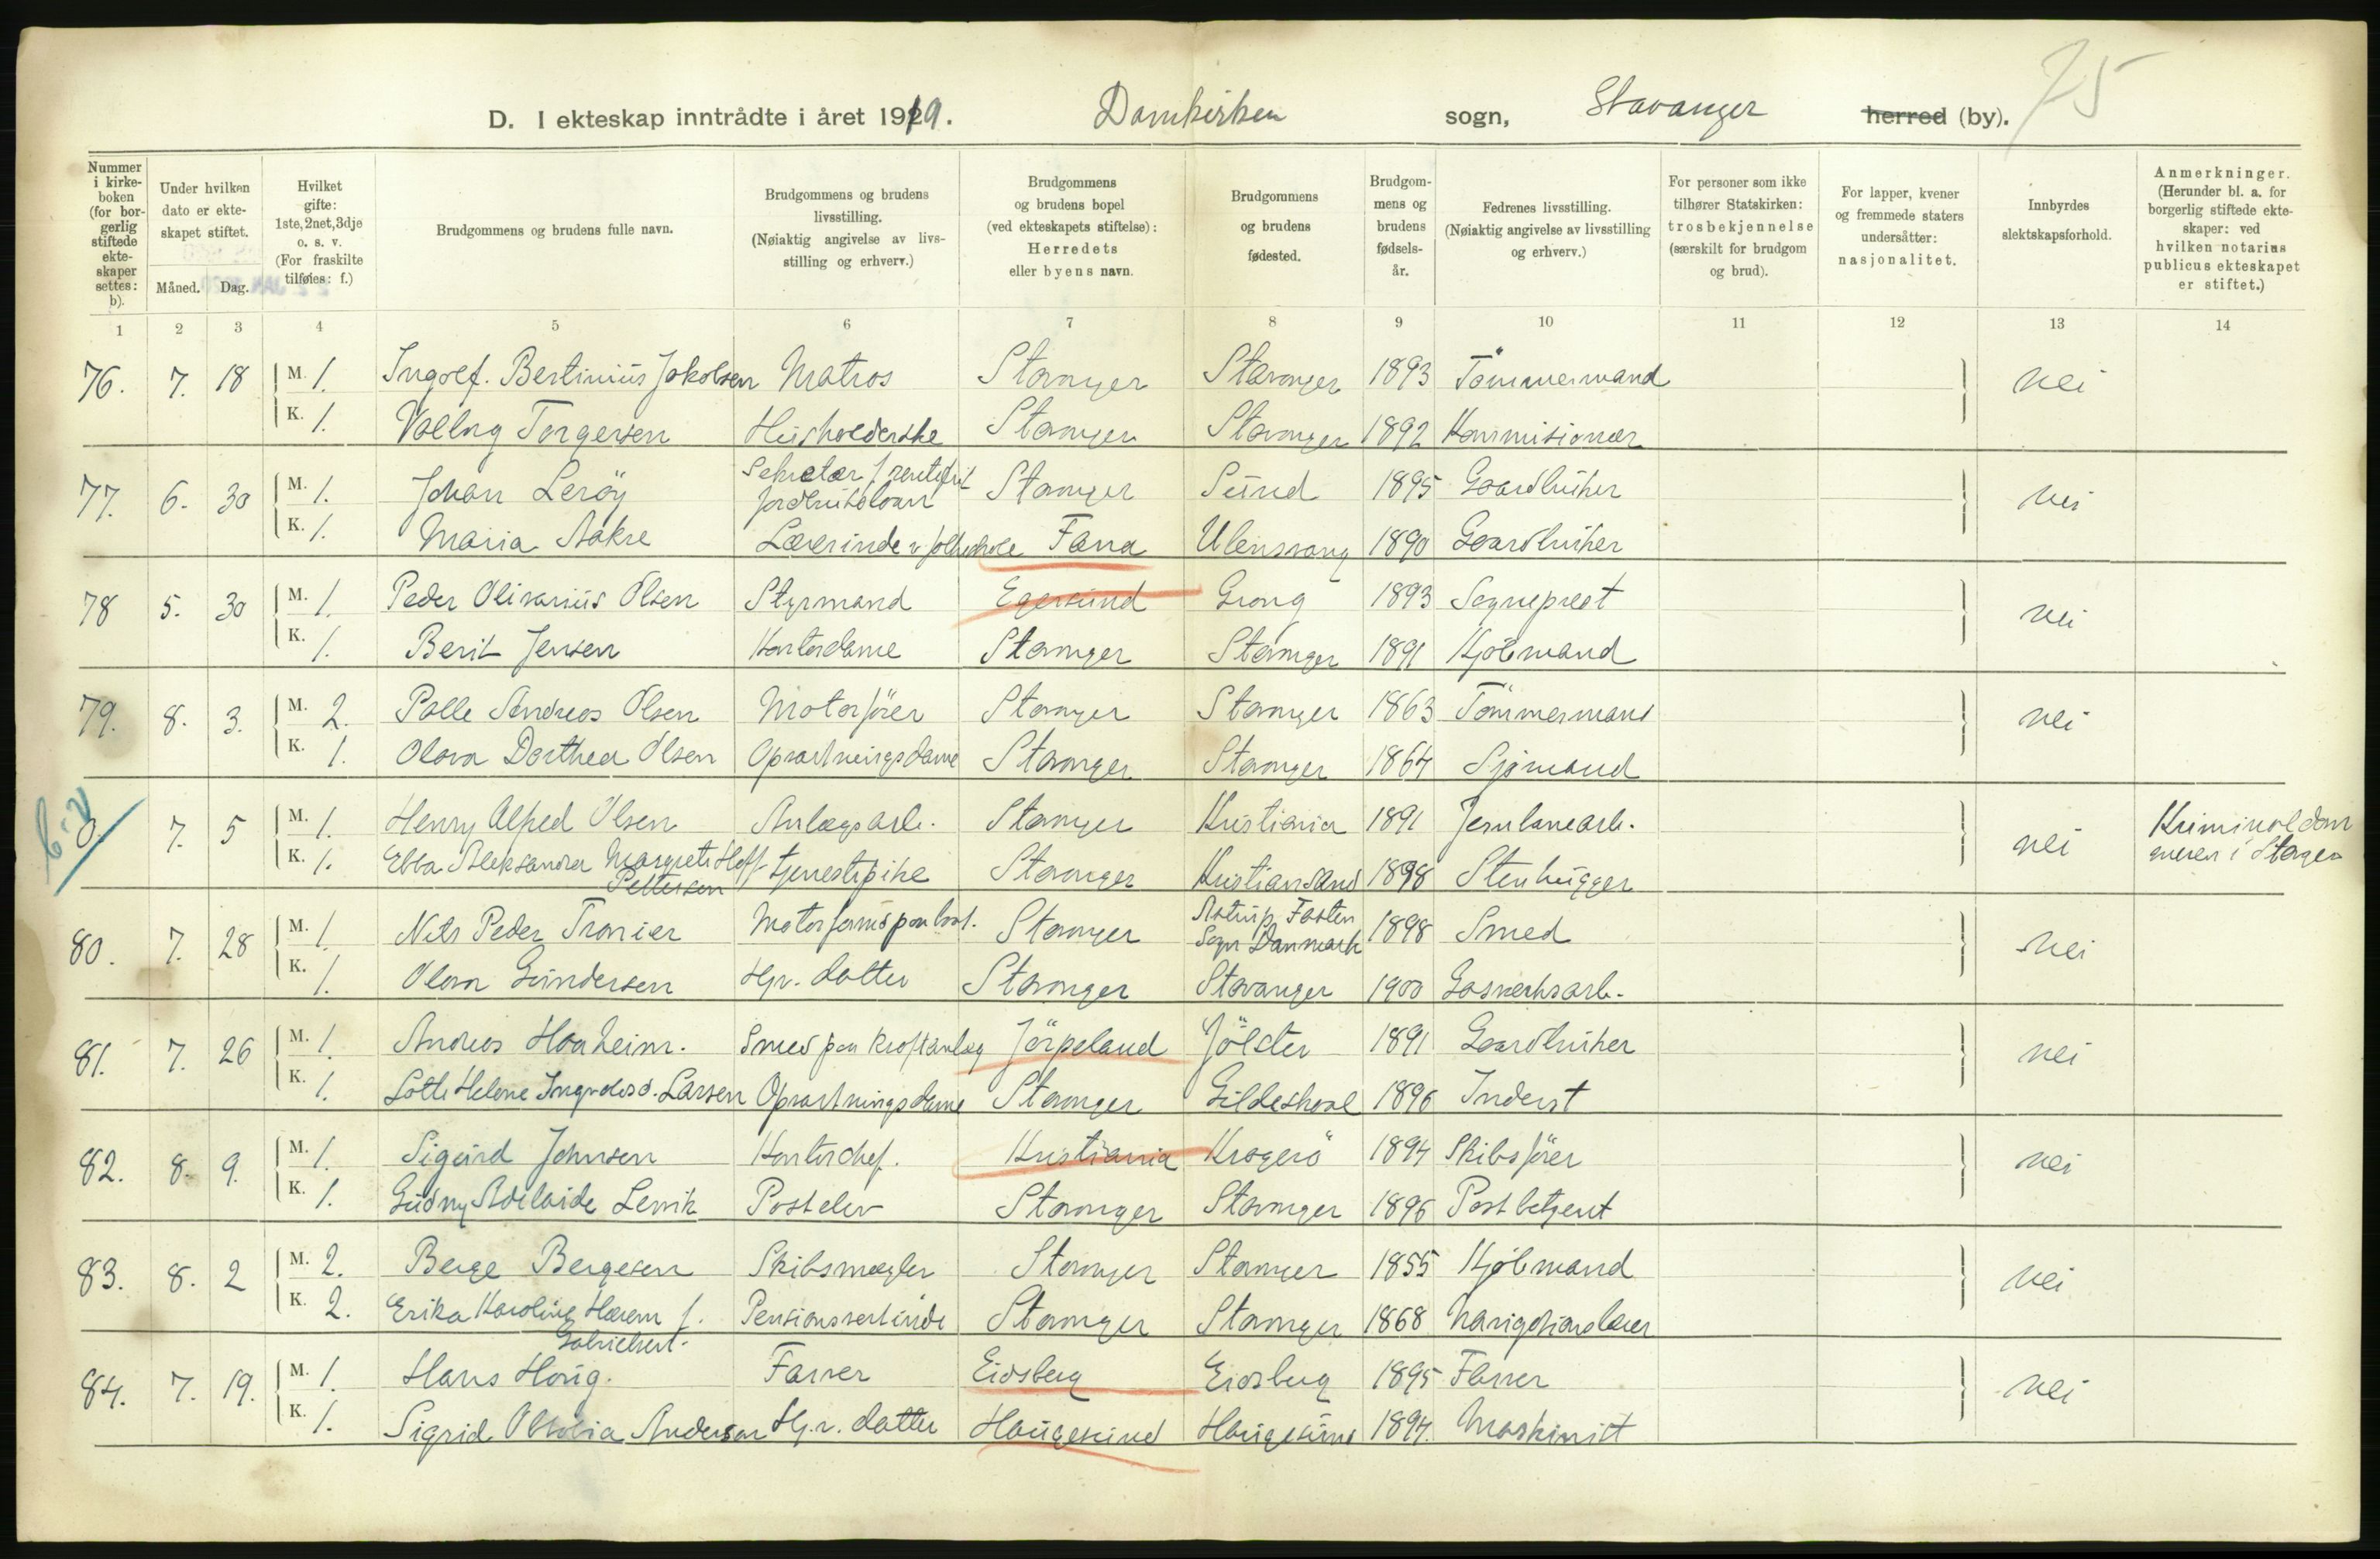 75
D. I ekteskap inntrådte i året 1919. Domkirken sogn, Stavanger herred (by).
Nummer i kirkeboken (for borgerlig stiftede ekteskaper settes: b).
Under hvilken dato er ekteskapet stiftet.
Måned. Dag.
Hvilket gifte: 1ste, 2net, 3dje o. s. v. (For fraskilte tilføies: f.)
Brudgommens og brudens fulle navn.
Brudgommens og brudens livsstilling. (Nøiaktig angivelse av livsstilling og erhverv.)
Brudgommens og brudens bopel (ved ekteskapets stiftelse): Herredets eller byens navn.
Brudgommens og brudens fødested.
Brudgommens og brudens fødselsår.
Fedrenes livsstilling. (Nøiaktig angivelse av livsstilling og erhverv.)
For personer som ikke tilhører Statskirken: trosbekjennelse (særskilt for brudgom og brud).
For lapper, kvener og fremmede staters undersåtter: nasjonalitet.
Innbyrdes slektskapsforhold.
Anmerkninger. (Herunder bl. a. for borgerlig stiftede ekteskaper: ved hvilken notarius publicus ekteskapet er stiftet.)
1 2 3 4 5 6 7 8 9 10 11 12 13 14
76. 7. 18 M. 1. Ingolf. Bertinius Jakobsen Matros Stavanger Stavanger 1893 Tömmermand nei
K. 1. Valborg Torgersen Husholderske Stavanger Stavanger 1892 Kommisionær
77. 6. 30 M. 1. Johan Leröy Sekretær Stavanger Sund 1895 Gaardbruker nei
K. 1. Maria Aakre Lærerinde v. folkeskole Fana Ulensvang 1890 Gaardbruker
78 5. 30 M. 1. Peder Olivarius Olsen Styrmand Egersund Grong 1893 Sogneprest nei
K. 1. Berit Jensen Kontordame Stavanger Stavanger 1891 Kjöbmand
79. 8. 3. M. 2. Palle Andreas Olsen Motorförer Stavanger Stavanger 1863 Tömmermand nei
K. 1. Olava Dorthea Olsen Opvartningsdame Stavanger Stavanger 1864 Sjömand
7. 5 M. 1. Henry Alfred Olsen Anlægsarb. Stavanger Kristiania 1891 Jernbanearb. nei Kriminaldom
K. 1. Ebba Aleksandra Margrete Hoff Pettersen tjenestepike Stavanger Kristiansand 1898 Stenhugger i Stavger
80. 7. 28 M. 1. Nils Peder Tranier Stavanger Astrup Danmark 1898 Smed nei
K. 1. Olava Gundersen Hjv. datter Stavanger Stavanger 1900 Gasverksarb.
81. 7. 26 M. 1. Andreas Haaheim. Smed paa kraftanlæg Jörpeland Jölster 1891 Gaardbruker nei
K. 1. Lotte Helene Larsen Opvartningsdame Stavanger Gildeskaal 1896 Inderst
82. 8. 9. M. 1. Sigurd Johnsen Kontorchef. Kristiania Kragerö 1894 Skibsförer nei
K. 1. Gudny Adelaide Lervik Postelev Stavanger Stavanger 1896 Postbetjent
83. 8. 2 M. 2. Berge Bergesen Skibsmægler Stavanger Stavanger 1855 Kjöbmand nei
K. 2. Erika Karoline Hærem f. Gabrielsen. Pensionsvertinde Stavanger Stavanger 1868 Navigationslærer
84. 7. 19. M. 1. Hans Haug. Farver Eidsberg Eidsberg 1895 Farver nei
K. 1. Sigrid Andersen Hj.v. datter Haugesund Haugesund 1894. Maskinist